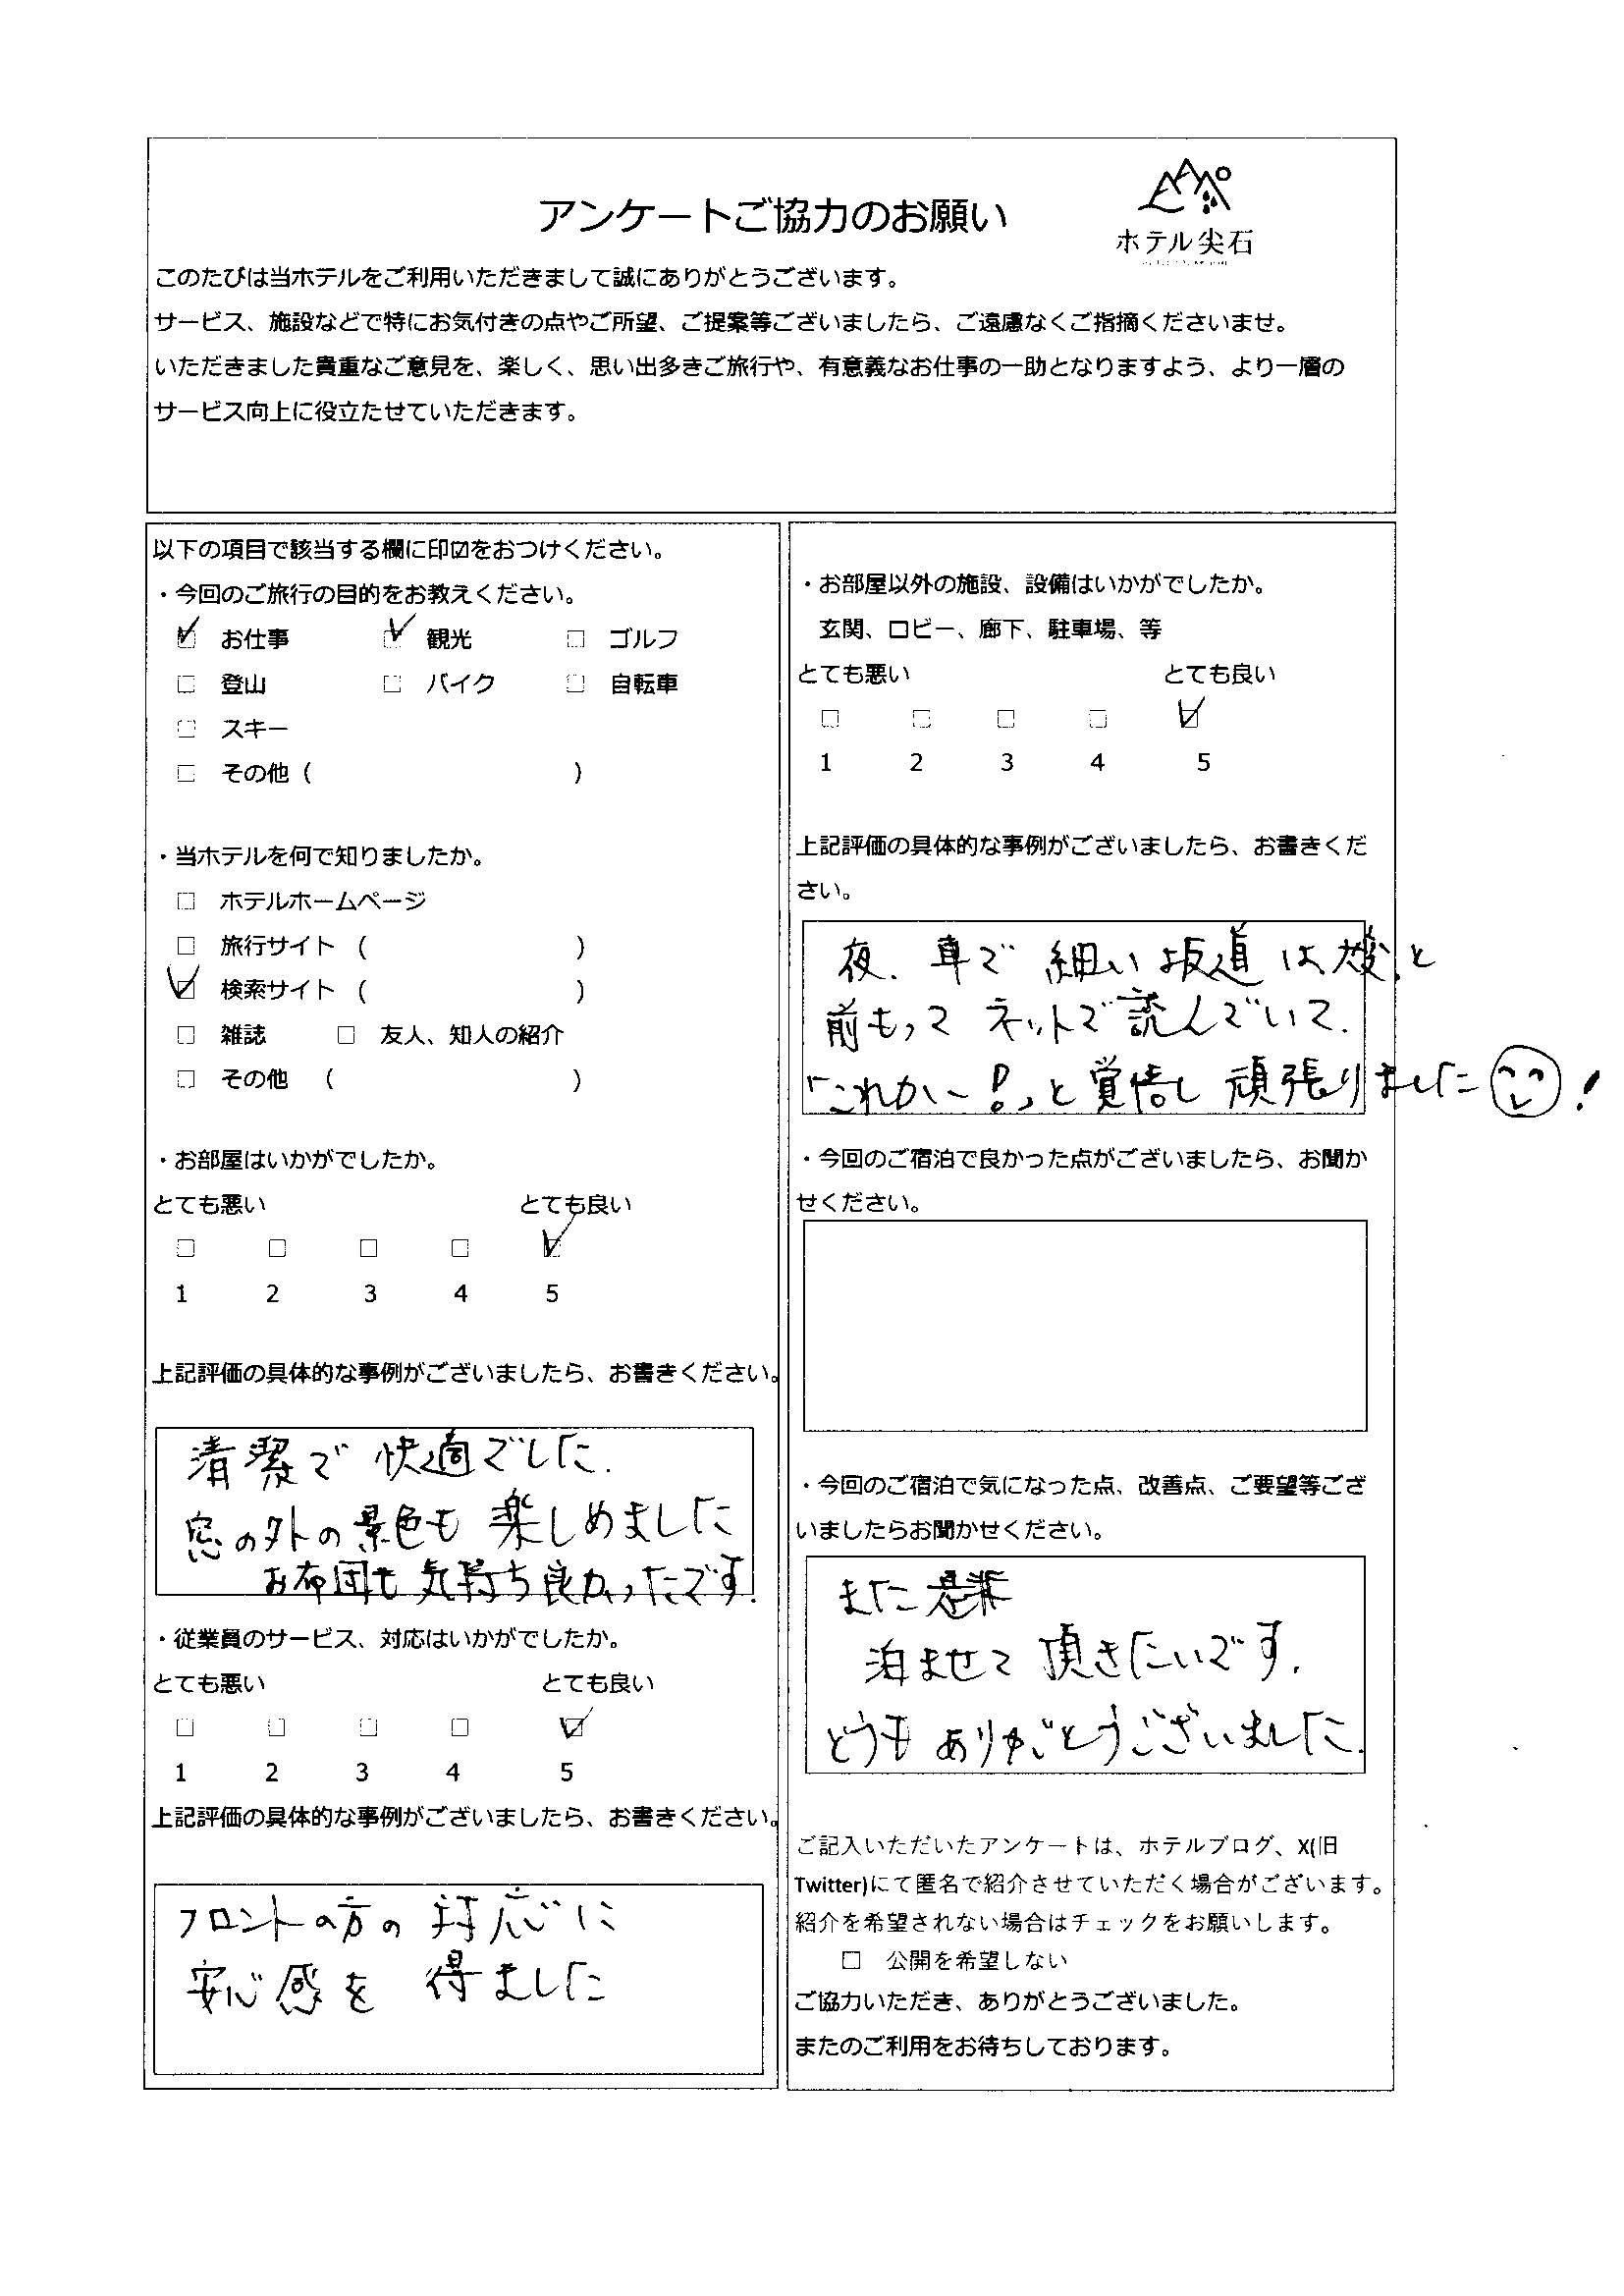 アンケートご協力のお願い
ホテル尖石
このたびは当ホテルをご利用いただきまして誠にありがとうございます。
サービス、施設などで特にお気付きの点やご所望、ご提案等ございましたら、ご遠慮なくご指摘くださいませ。
いただきました貴重なご意見を、楽しく、思い出多きご旅行や、有意義なお仕事の一助となりますよう、より一層の
サービス向上に役立たせていただきます。
以下の項目で該当する欄に印☑をおつけください。
・今回のご旅行の目的をお教えください。
☑ お仕事 ☑ 観光 □ ゴルフ
□ 登山 □ バイク □ 自転車
□ スキー
□ その他（ ）
・当ホテルを何で知りましたか。
□ ホテルホームページ
□ 旅行サイト （ ）
☑ 検索サイト （ ）
□ 雑誌 □ 友人、知人の紹介
□ その他 （ ）
・お部屋はいかがでしたか。
とても悪い とても良い
□ □ □ □ ☑
1 2 3 4 5
上記評価の具体的な事例がございましたら、お書きください。
清潔で 快適でした.
窓の外の景色も 楽しめました
お布団も 気持ち良かったです.
・従業員のサービス、対応はいかがでしたか。
とても悪い とても良い
□ □ □ □ ☑
1 2 3 4 5
上記評価の具体的な事例がございましたら、お書きください。
フロントの方の 対応に
安心感を 得ました
・お部屋以外の施設、設備はいかがでしたか。
玄関、ロビー、廊下、駐車場、等
とても悪い とても良い
□ □ □ □ ☑
1 2 3 4 5
上記評価の具体的な事例がございましたら、お書きくだ
さい。
夜. 車で 細い 坂道 は、と
前もって ネットで 読んでいて.
「これかー!」と 覚悟し 頑張りました!
・今回のご宿泊で良かった点がございましたら、お聞か
せください。
・今回のご宿泊で気になった点、改善点、ご要望等ござ
いましたらお聞かせください。
また 是非
泊ませて 頂きたいです.
どうも ありがとうございました.
ご記入いただいたアンケートは、ホテルブログ、X(旧
Twitter)にて匿名で紹介させていただく場合がございます。
紹介を希望されない場合はチェックをお願いします。
□ 公開を希望しない
ご協力いただき、ありがとうございました。
またのご利用をお待ちしております。